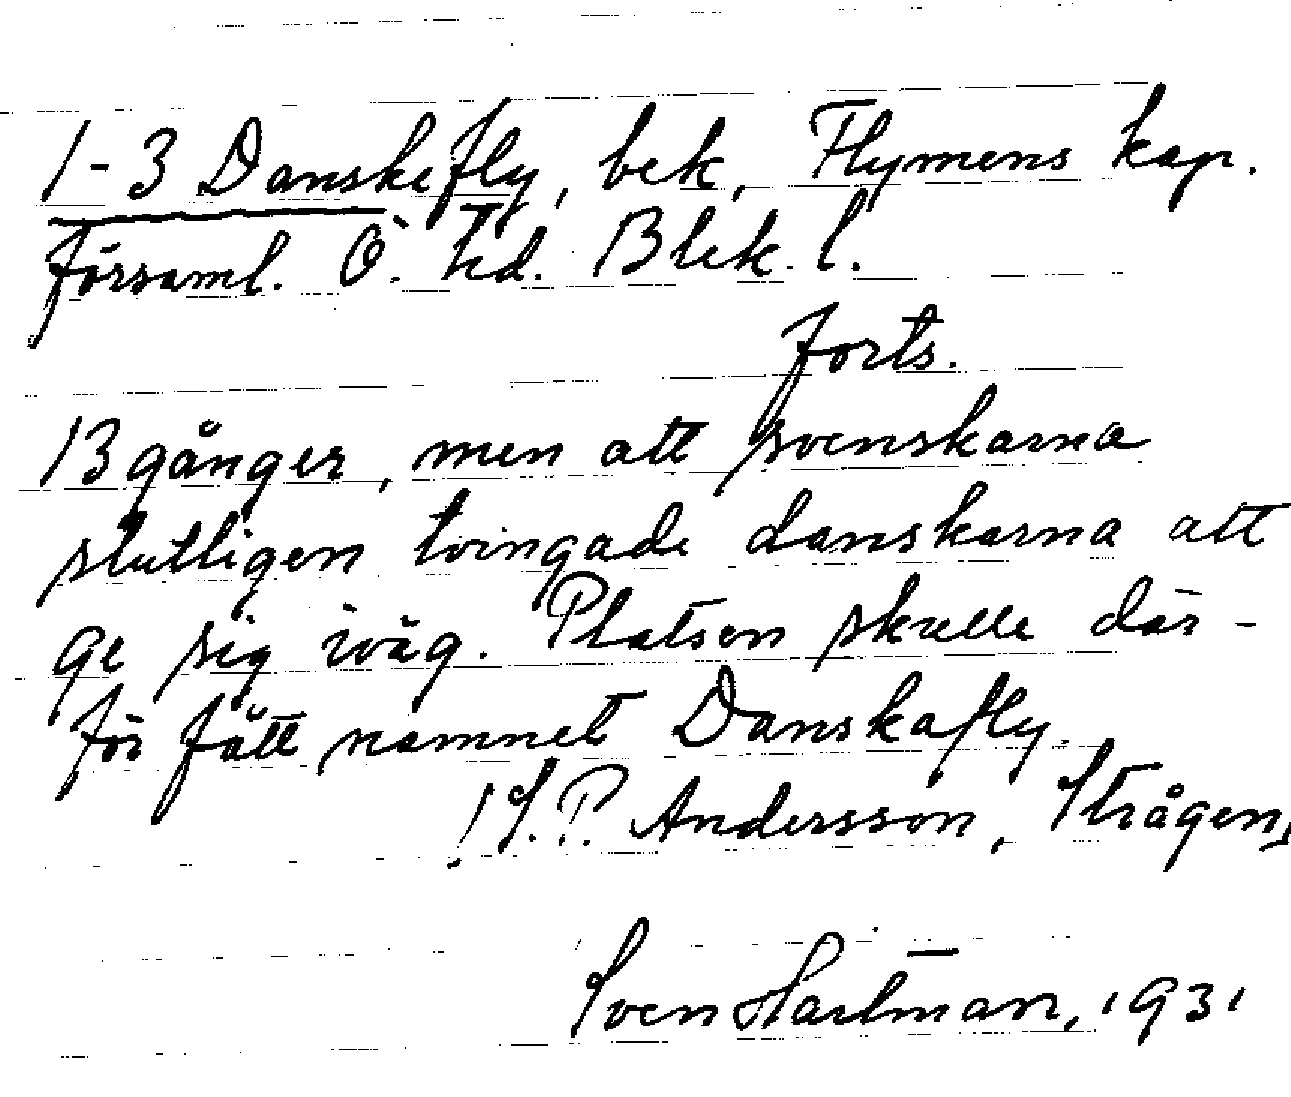 1-3 Danskefly, bek, Flymens kap.
församl. Ö. hd. Blek. l.
forts.
13 gånger, men att svenskarna
slutligen tvingade danskarna att
ge sig iväg. Platsen skulle där-
för fått namnet Danskafly.
! S. P. Andersson, Strågen,
Sven Hartman, 1931